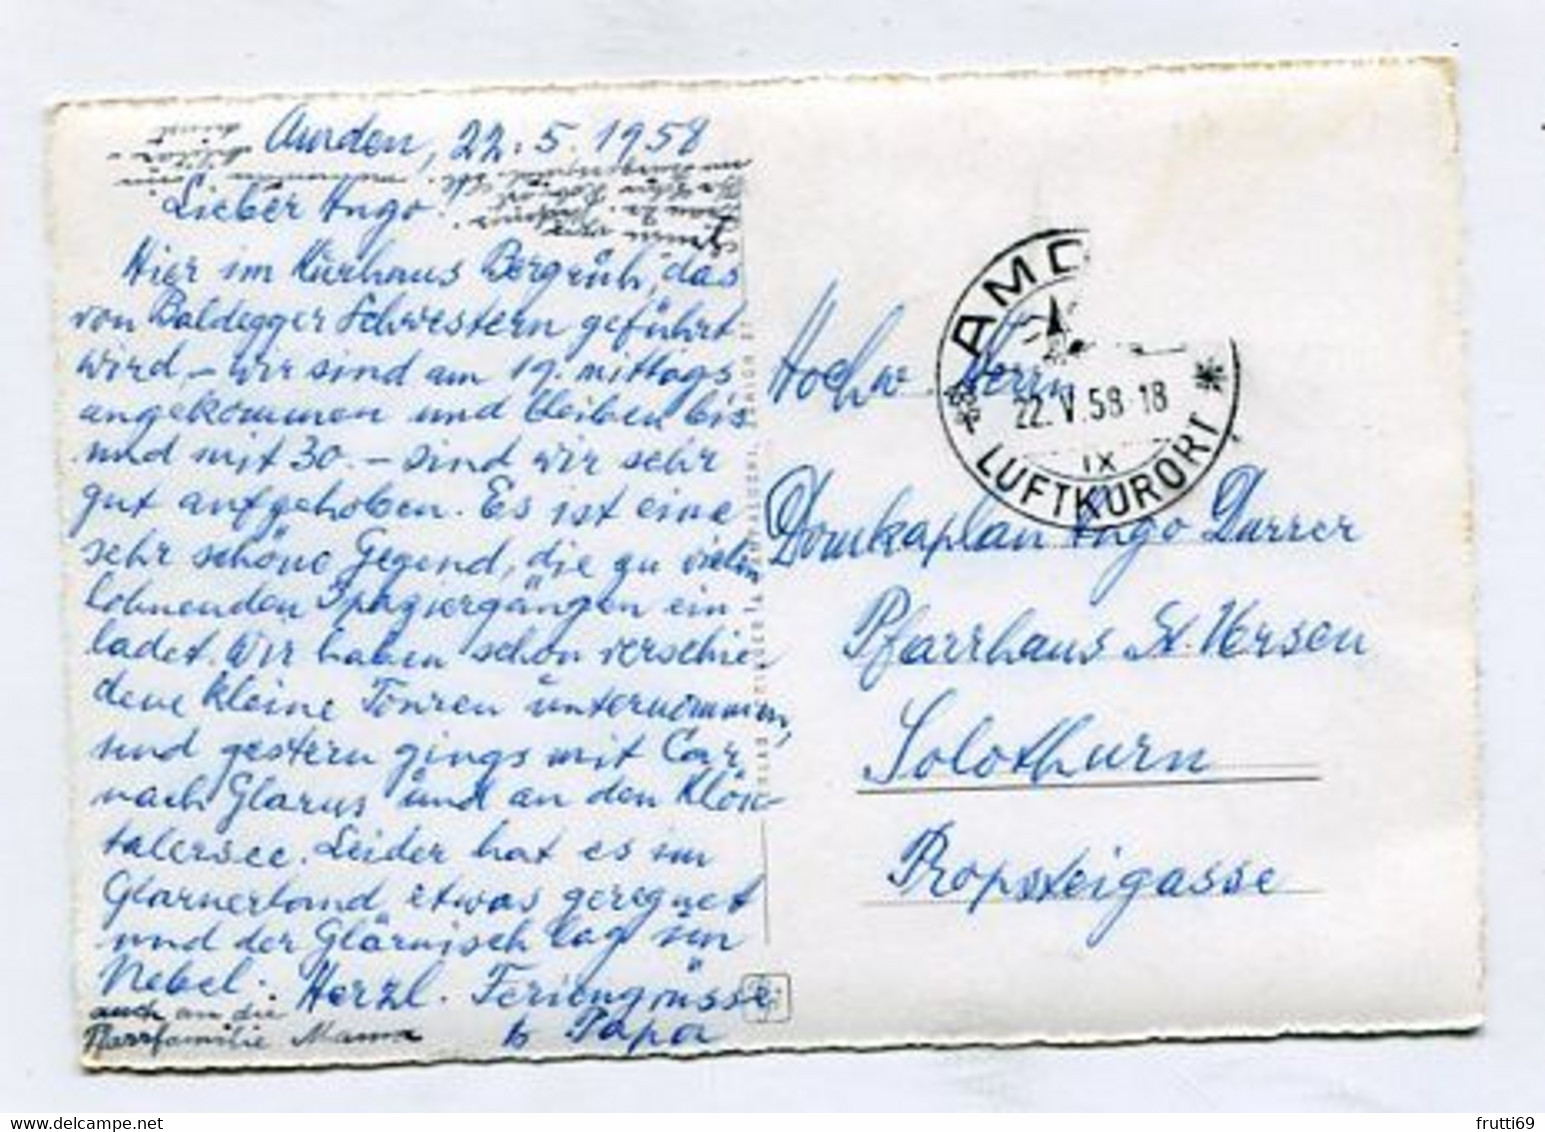 Amden, 22.5.1958
Lieber Ingo.
Hier im Kurhaus Bergruh, das
von Baldegger Schwestern geführt
wird, – wir sind am 19. mittags
angekommen und bleiben bis
und mit 30. – sind wir sehr
gut aufgehoben. Es ist eine
sehr schöne Gegend, die zu vielen
lohnenden Spaziergängen ein-
ladet. Wir haben schon verschie-
dene kleine Touren unternommen,
und gestern gings mit Car
nach Glarus und an den Klön-
talersee. Leider hat es im
Glarnerland etwas geregnet
und der Glärnisch lag im
Nebel. Herzl. Feriengrüsse
Papa
auch an die
Pfarrfamilie Mama
AMD
22.V.58-18
IX
LUFTKURORT
Hochw. Herrn
Domkaplan Ingo Durrer
Pfarrhaus St. Ursen
Solothurn
Propsteigasse
frutti69